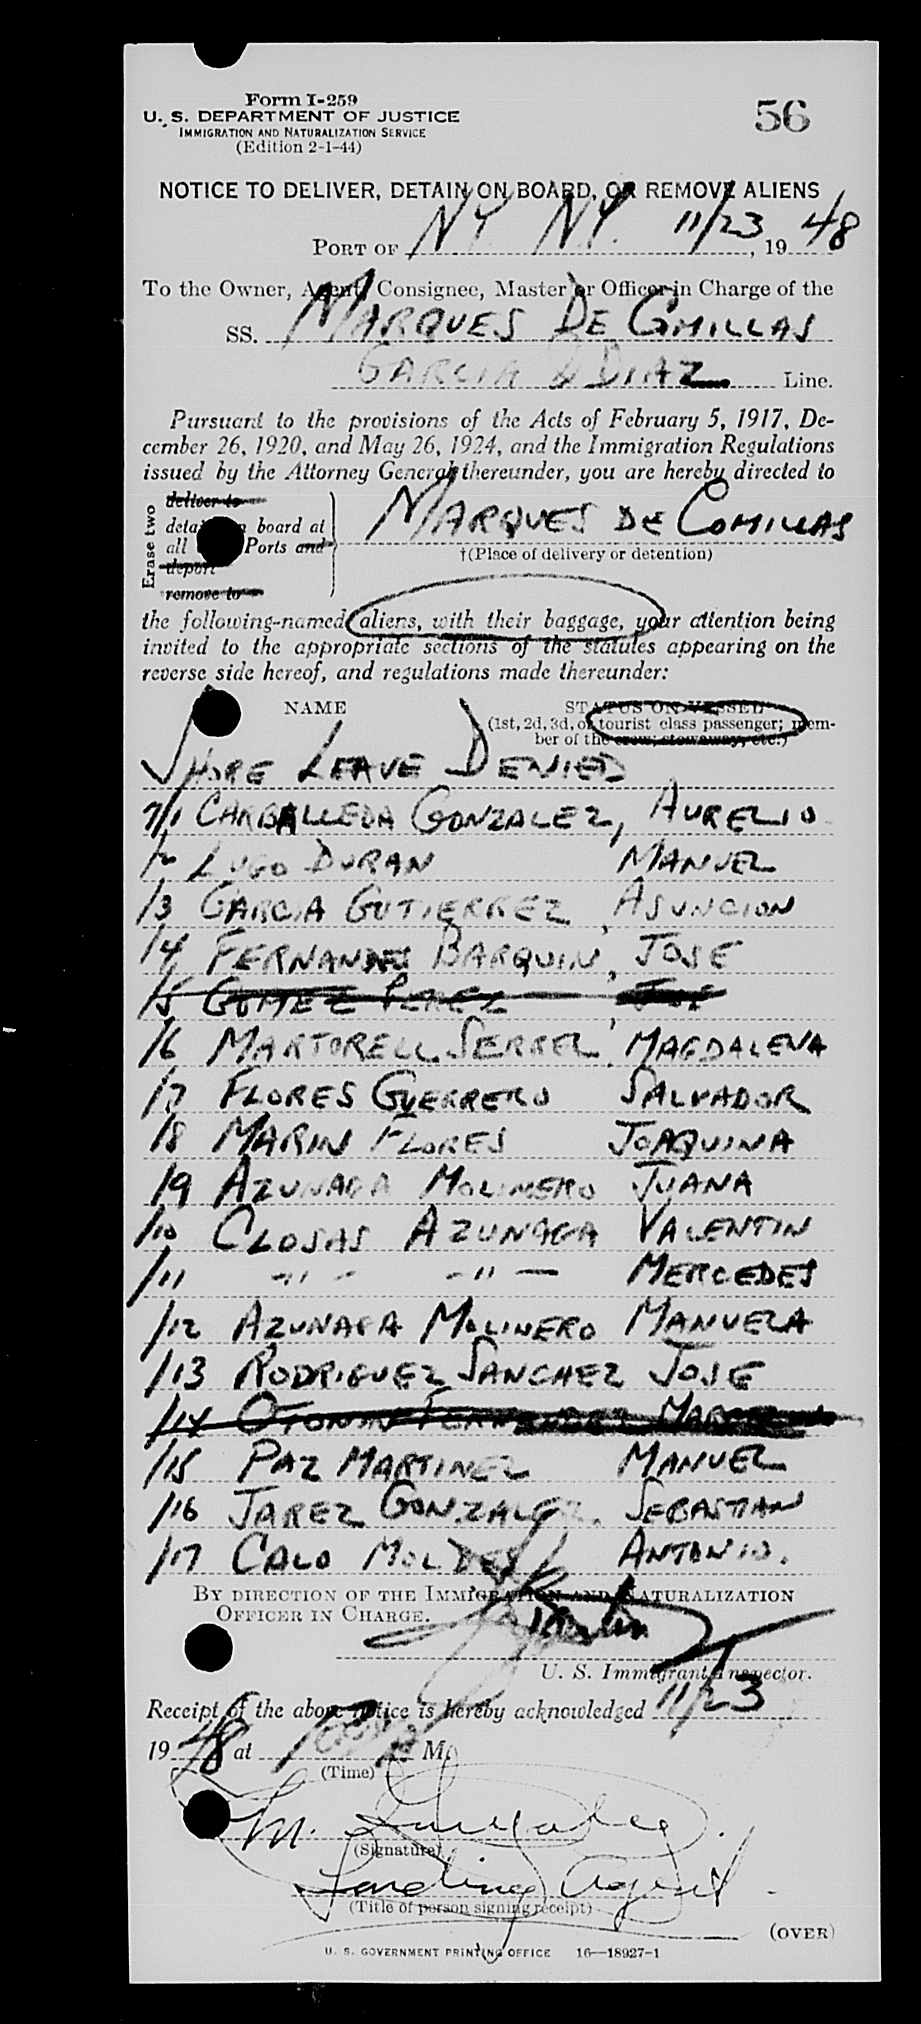 Form I-259
U. S. DEPARTMENT OF JUSTICE
IMMIGRATION AND NATURALIZATION SERVICE
(Edition 2-1-44)
56
NOTICE TO DELIVER, DETAIN ON BOARD, OR REMOVE ALIENS
PORT OF NY. N.Y. 11/23, 1948
To the Owner, Agent, Consignee, Master or Officer in Charge of the
SS. MARQUES DE COMILLAS
GARCIA & DIAZ Line.
Pursuant to the provisions of the Acts of February 5, 1917, De-
cember 26, 1920, and May 26, 1924, and the Immigration Regulations
issued by the Attorney General thereunder, you are hereby directed to
Erase two
deliver to
detain on board at
all Ports and
deport
remove to
MARQUES DE COMILLAS
†(Place of delivery or detention)
the following-named aliens, with their baggage, your attention being
invited to the appropriate sections of the statutes appearing on the
reverse side hereof, and regulations made thereunder:
NAME STATUS ON VESSEL
(1st, 2d, 3d, or tourist class passenger; mem-
ber of the crew; stowaway, etc.)
SHORE LEAVE DENIED
1/1 CARBALLEDA GONZALEZ, AURELIO
/2 LUGO DURAN MANUEL
/3 GARCIA GUTIERREZ, ASUNCION
/4 FERNANDES BARQUIN, JOSE
/5 GOMEZ PEREZ JOSE
/6 MARTORELL SERREL, MAGDALENA
/7 FLORES GUERRERO SALVADOR
/8 MARIN FLORES JOAQUINA
/9 AZUNAGA MOLINERO JUANA
/10 CLOSAS AZUNAGA VALENTIN
/11 -"- -"- MERCEDES
/12 AZUNAGA MOLINERO MANUELA
/13 RODRIGUEZ SANCHEZ JOSE
/14 FERNANDEZ
/15 PAZ MARTINEZ MANUEL
/16 JAREZ GONZALEZ. SEBASTIAN
/17 CALO MOLDES ANTONIO.
BY DIRECTION OF THE IMMIGRATION AND NATURALIZATION
OFFICER IN CHARGE.
U. S. Immigrant Inspector.
Receipt of the above notice is hereby acknowledged 11/23
1948 at M.
(Time)
M. Gonzalez
(Signature)
Landing Agent
(Title of person signing receipt)
(OVER)
U. S. GOVERNMENT PRINTING OFFICE 16—18927-1